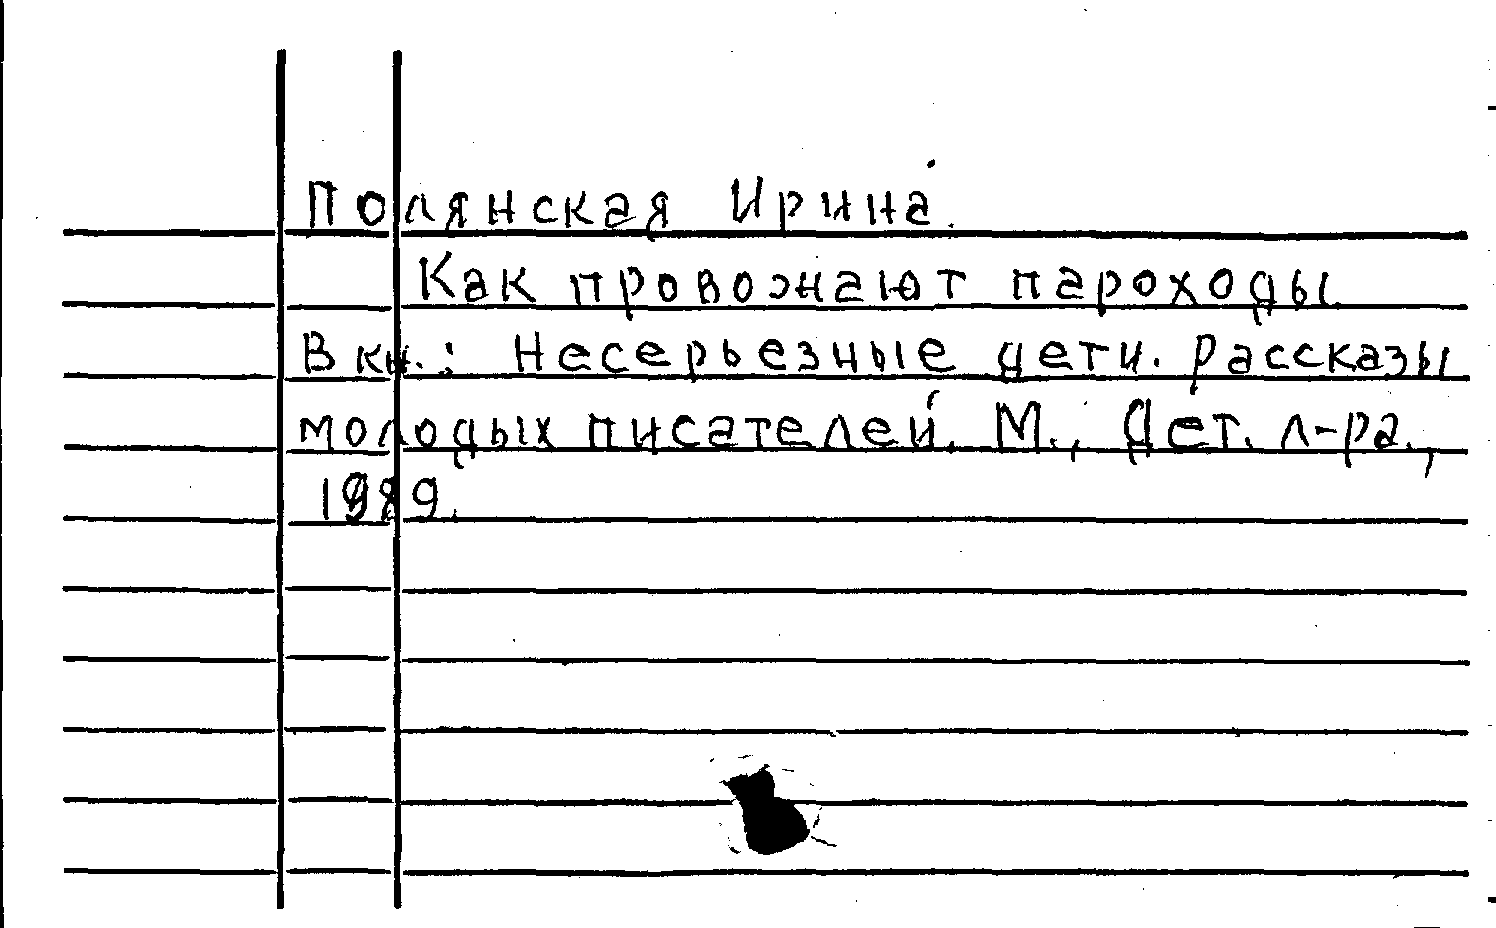 Полянская Ирина.
Как провожают пароходы
В кн.: Несерьезные дети. Рассказы
молодых писателей. М., Дет. л-ра.,
1989.